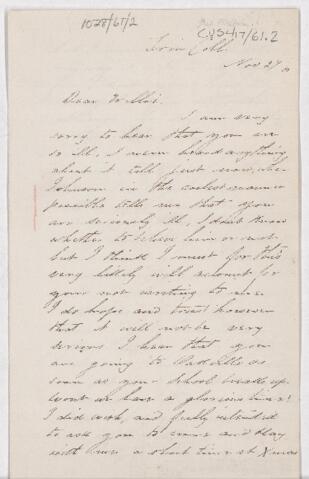 1078/61/2
CUS417/61.2
Trin Coll.
Nov 27
Dear Willie.
I am very
sorry to hear that you are
so ill, I never heard anything
about it till just now, when
Johnson in the coolest manner
possible tells me that you
are seriously ill, I dont know
whether to believe him or not.
but I think I must for this
very likely will account for
your not writing to me
I do hope and trust however
that it will not be very
serious I hear that you
are going to as
soon as your School breaks up.
wont we have a glorious time!
I did wish, and fully intended
to ask you to come and stay
with me a short time at Xmas